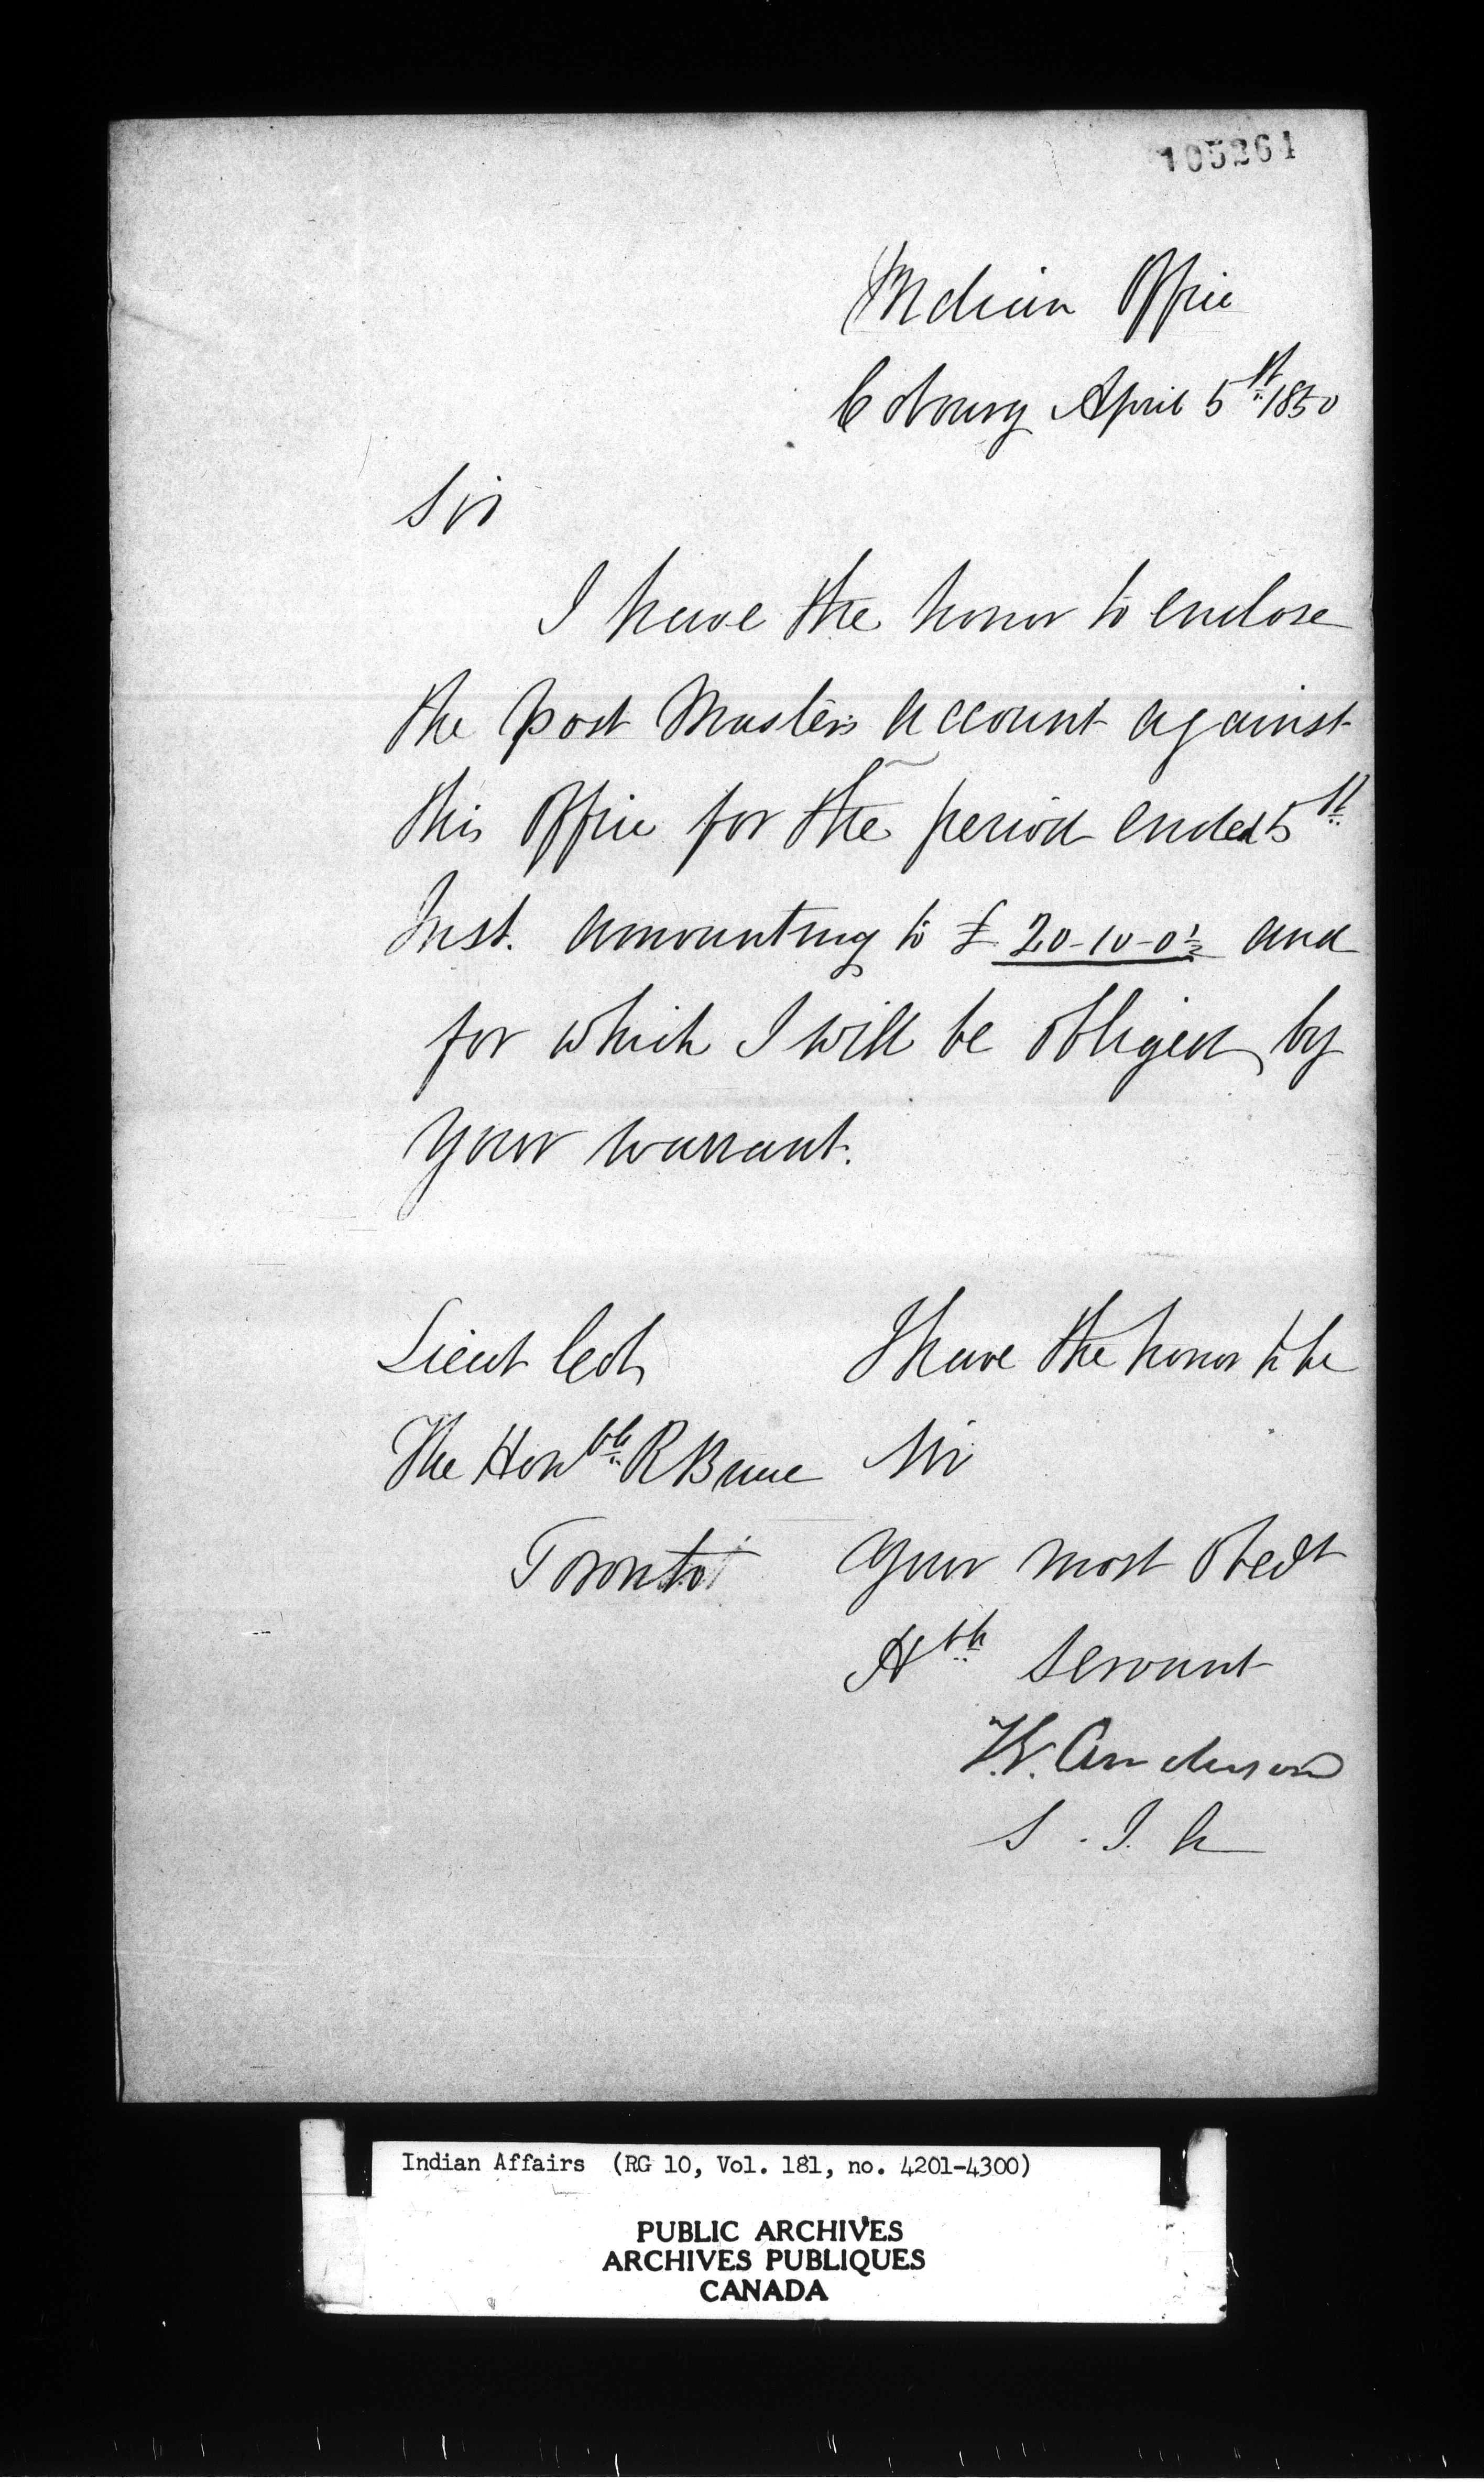 105261
Indian Office
Cobourg April 5th 1850
Sir
I have the honor to enclose
the Post Masters account against
this Office for the period ended 5th
Inst. amounting to £ 20-10-0½ and
for which I will be obliged by
your warrant.
I have the honor to be
Sir
Your most obedt
Hble servant
T.G. Anderson
S. I. A
Lieut Col
The Honble R Bruce
Toronto
Indian Affairs (RG 10, Vol. 181, no. 4201-4300)
PUBLIC ARCHIVES
ARCHIVES PUBLIQUES
CANADA